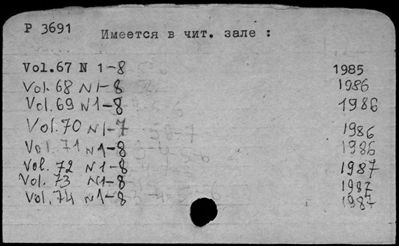 Р 3691
Имеется в чит. зале :
Vol.67 N 1-8 1985
Vol. 68 N1-8 1986
Vol. 69 N1-8 1986
Vol. 70 N1-7 1986
Vol. 71 N1-8 1986
Vol. 72 N1-8 1987
Vol. 73 N1-8 1987
Vol. 74 N1-8 1987